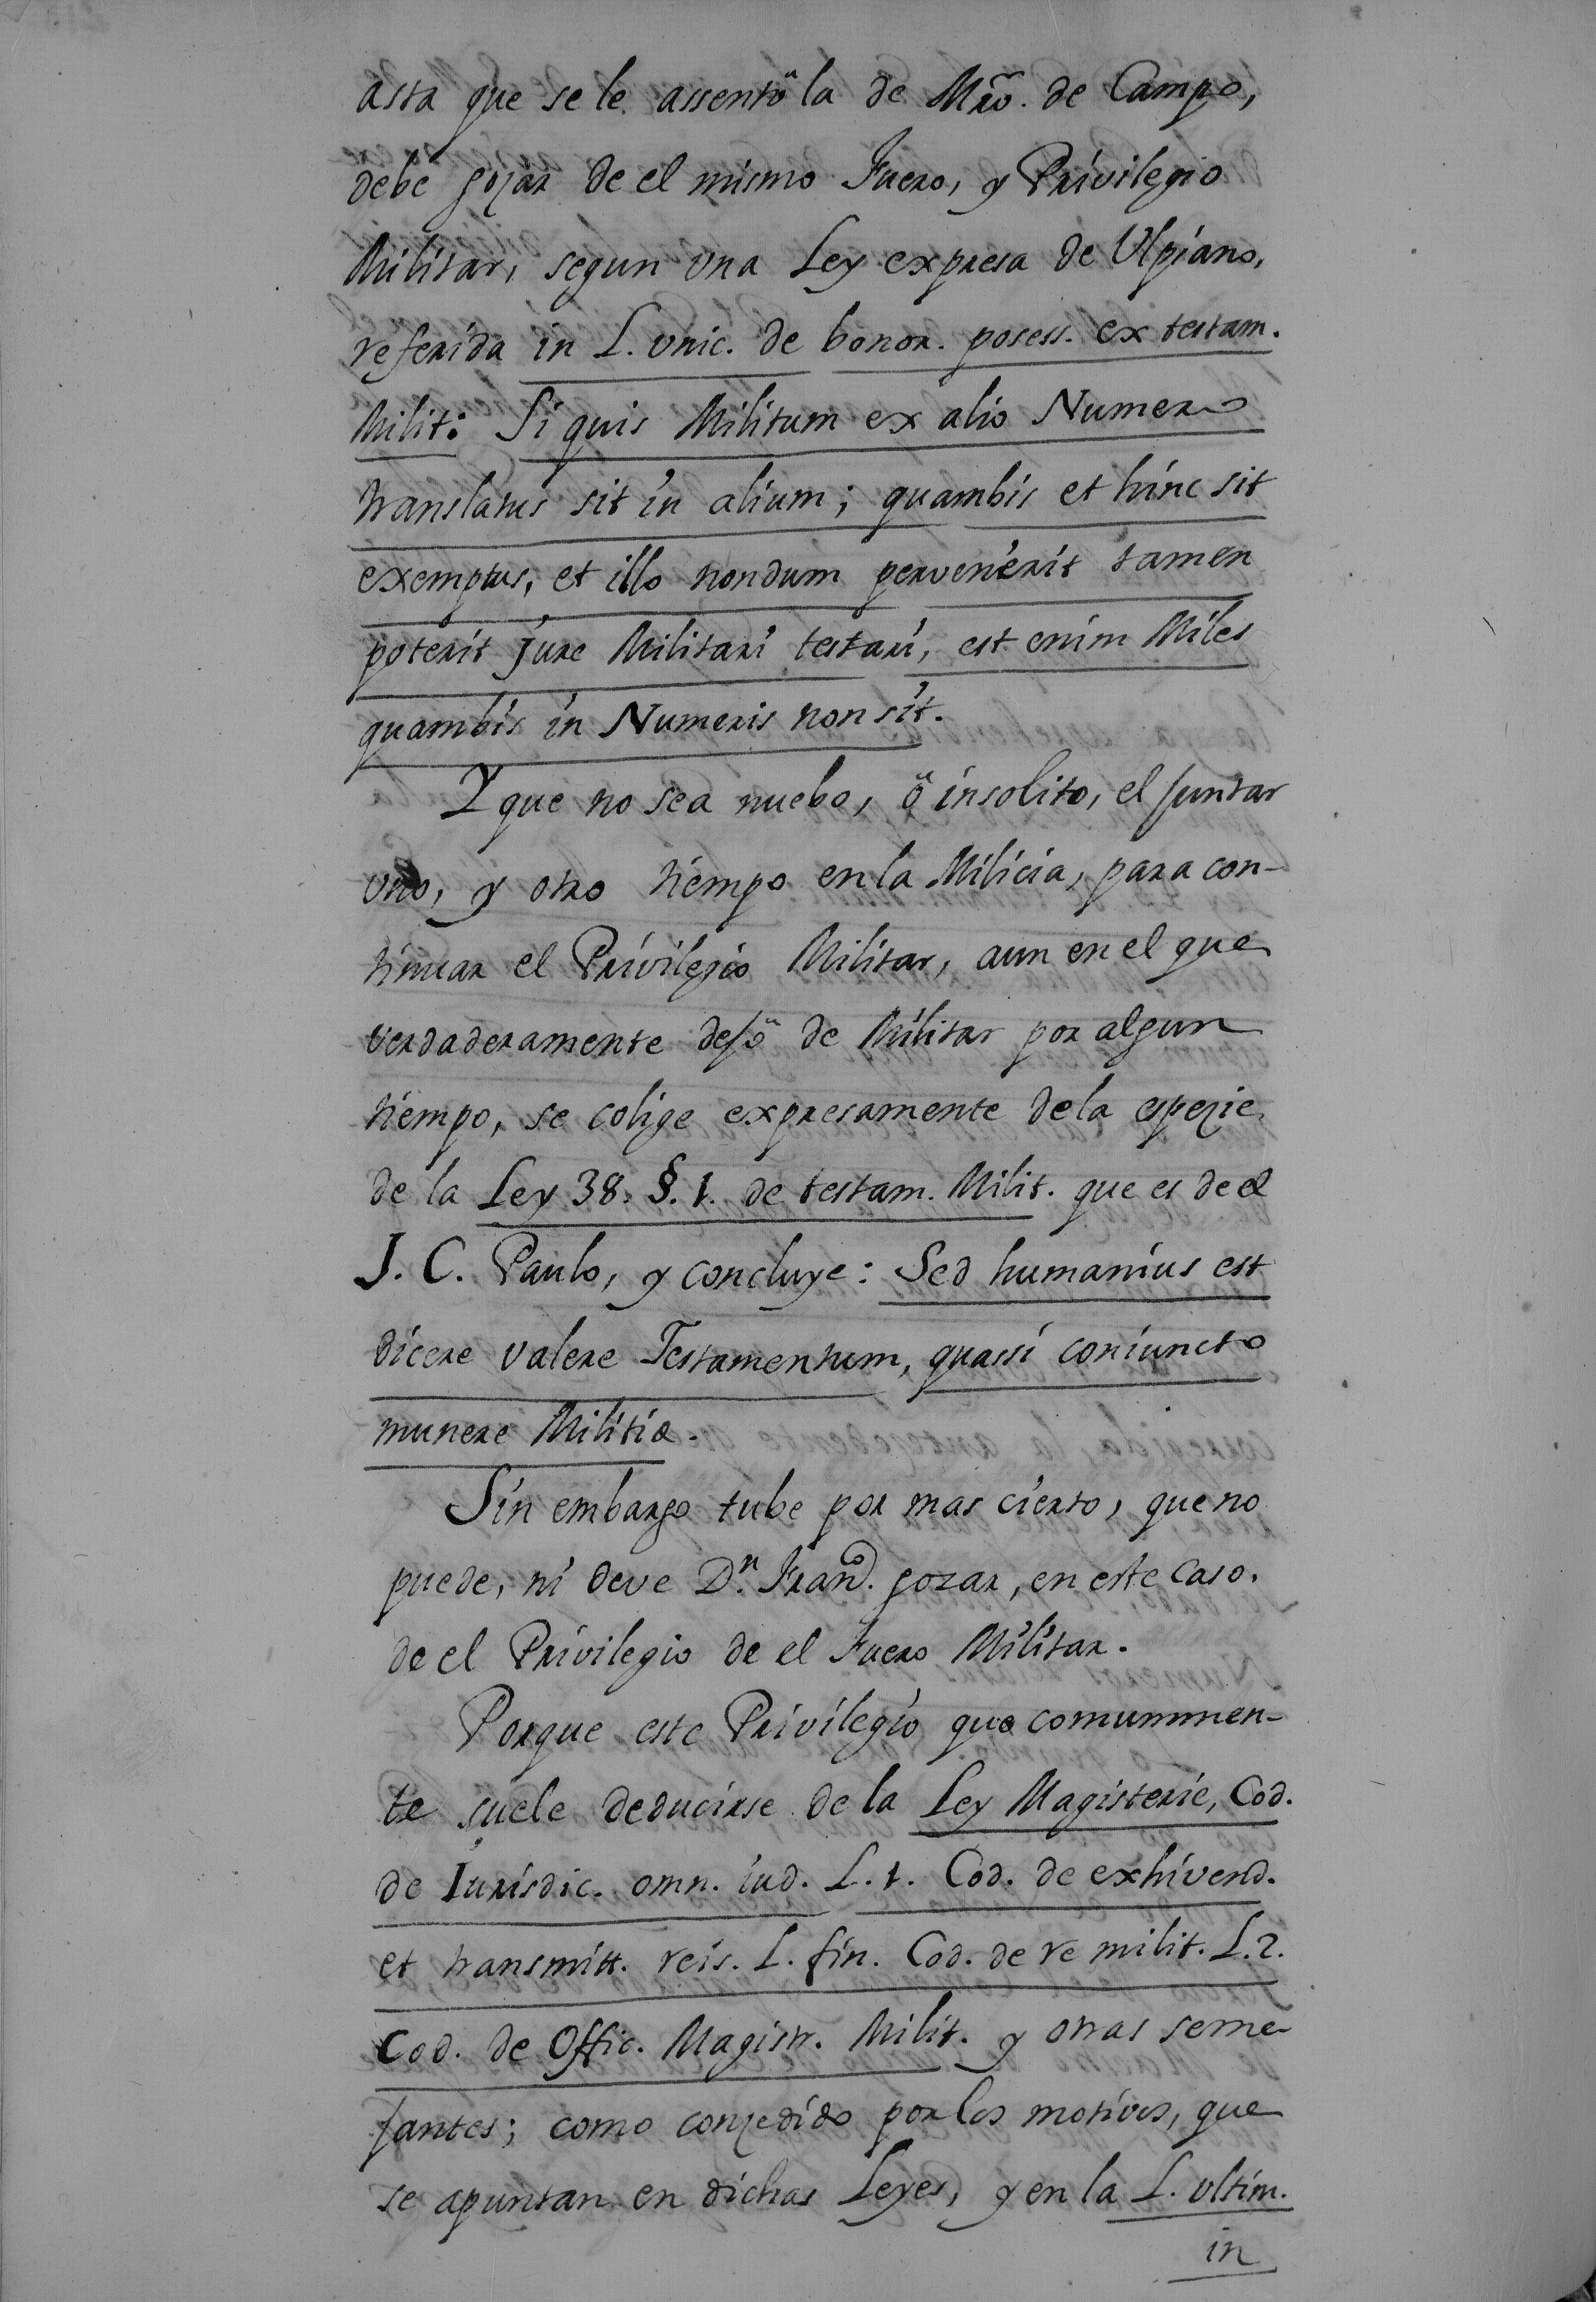 asta que se le assentô la de Mrõ. de Campo,
debe gozar de el mismo Fuero, y Privilegio
Militar, segun vna Ley expresa de Vlpiano,
referida in L. vnic. de bonor. posess. ex testam.
Milit: Si quis Militum ex alio Numero
translatus sit in alium; quambis et hinc sit
exemptus, et illo nondum pervenerit tamen
poterit jure Militari testari, est enim Miles
quambis in Numeris non sit.
Y que no sea nuebo, ô insolito, el juntar
vno, y otro tiempo en la Milicia, para con-
tinuar el Privilegio Militar, aun en el que
verdaderamente dejô de Militar por algun
tiempo, se colige expresamente de la espezie
de la Ley 38. §. 1. de testam. Milit. que es de el
J. C. Paulo, y concluye: Sed humanius est
dicere valere Testamentum, quassi coniuncto
munere Militiæ.
Sin embargo tube por mas cierto, que no
puede, ni deve Dn. Franco. gozar, en este caso,
de el Privilegio de el Fuero Militar.
Porque este Privilegio que comunmen-
te suele deducirse de la Ley Magisterie, Cod.
de Iurisdic. omn. iud. L. 1. Cod. de exhivend.
et transmitt. reis. L. fin. Cod. de re milit. L. 2.
Cod. de Offic. Magistr. Milit. y otras seme-
jantes; como conzedido por los motivos, que
se apuntan en dichas Leyes, y en la L. vltim.
in